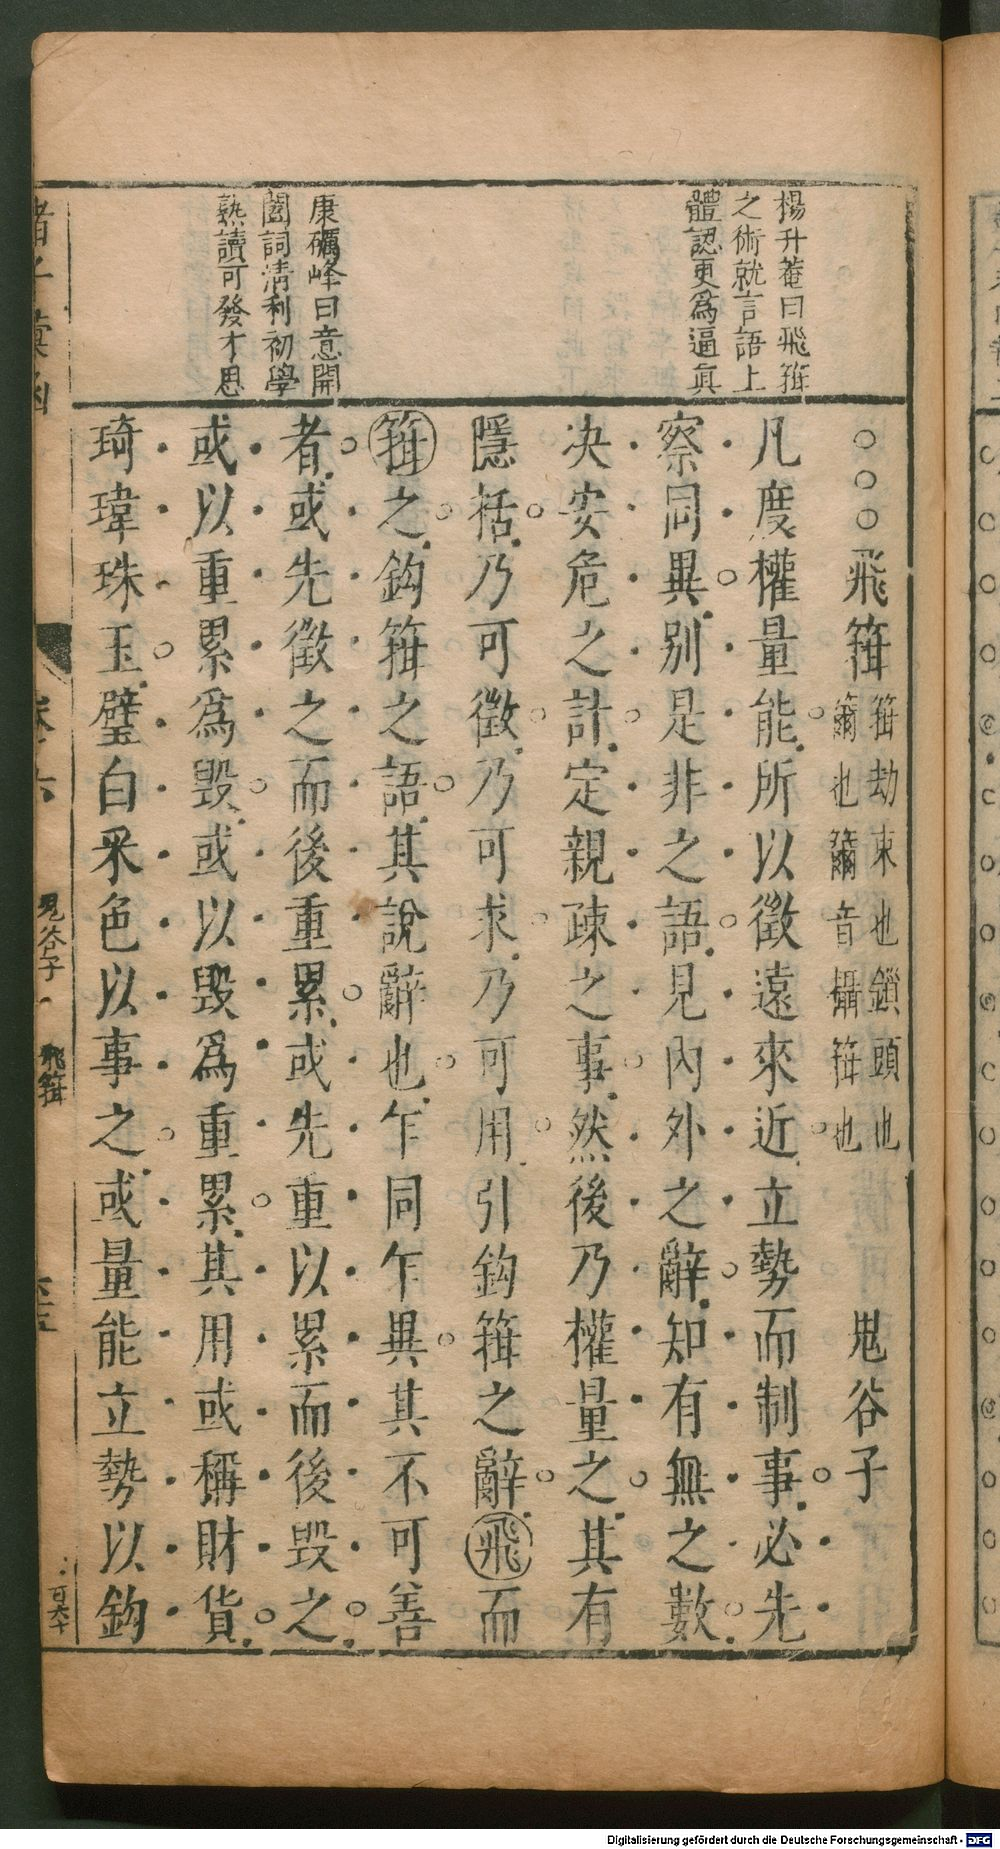 楊升菴曰飛箝
之術就言語上
體認更爲逼真
康礪峰曰意開
闔詞淸利初學
熟讀可發才思
○○○飛箝 箝劫束也鎖頭也 鬼谷子
籋也籋音攝箝也
凡度權量能所以徵遠來近立勢而制事必先
察同異別是非之語見內外之辭知有無之數
决安危之計定親疎之事然後乃權量之其有
隱括乃可徵乃可求乃可用引鈎箝之辭飛而
箝之鈎箝之語其說辭也乍同乍異其不可善
者或先徵之而後重累或先重以累而後毀之
或以重累爲毀或以毀爲重累其用或稱財貨
琦瑋珠玉璧白采色以事之或量能立勢以鈎
諸子彙函
鬼谷子 飛箝
百六十
Digitalisierung gefördert durch die Deutsche Forschungsgemeinschaft - DFG